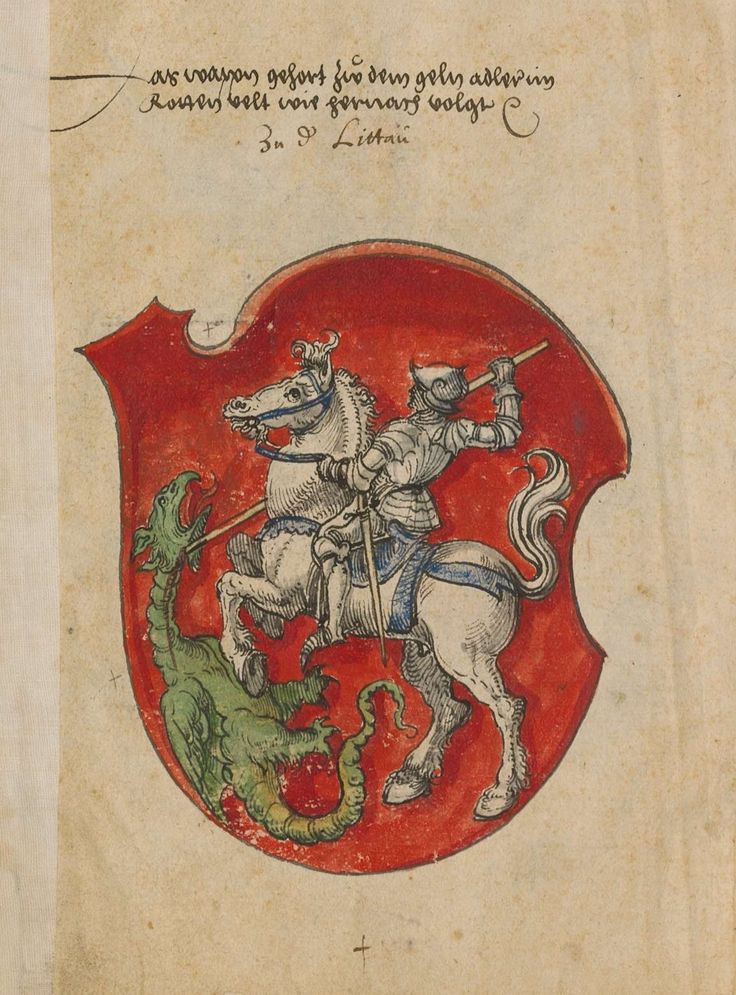 Das wappn gehort zw dem geln adler im
Rotten velt wie hernach volgt
Zu d Littaŭ